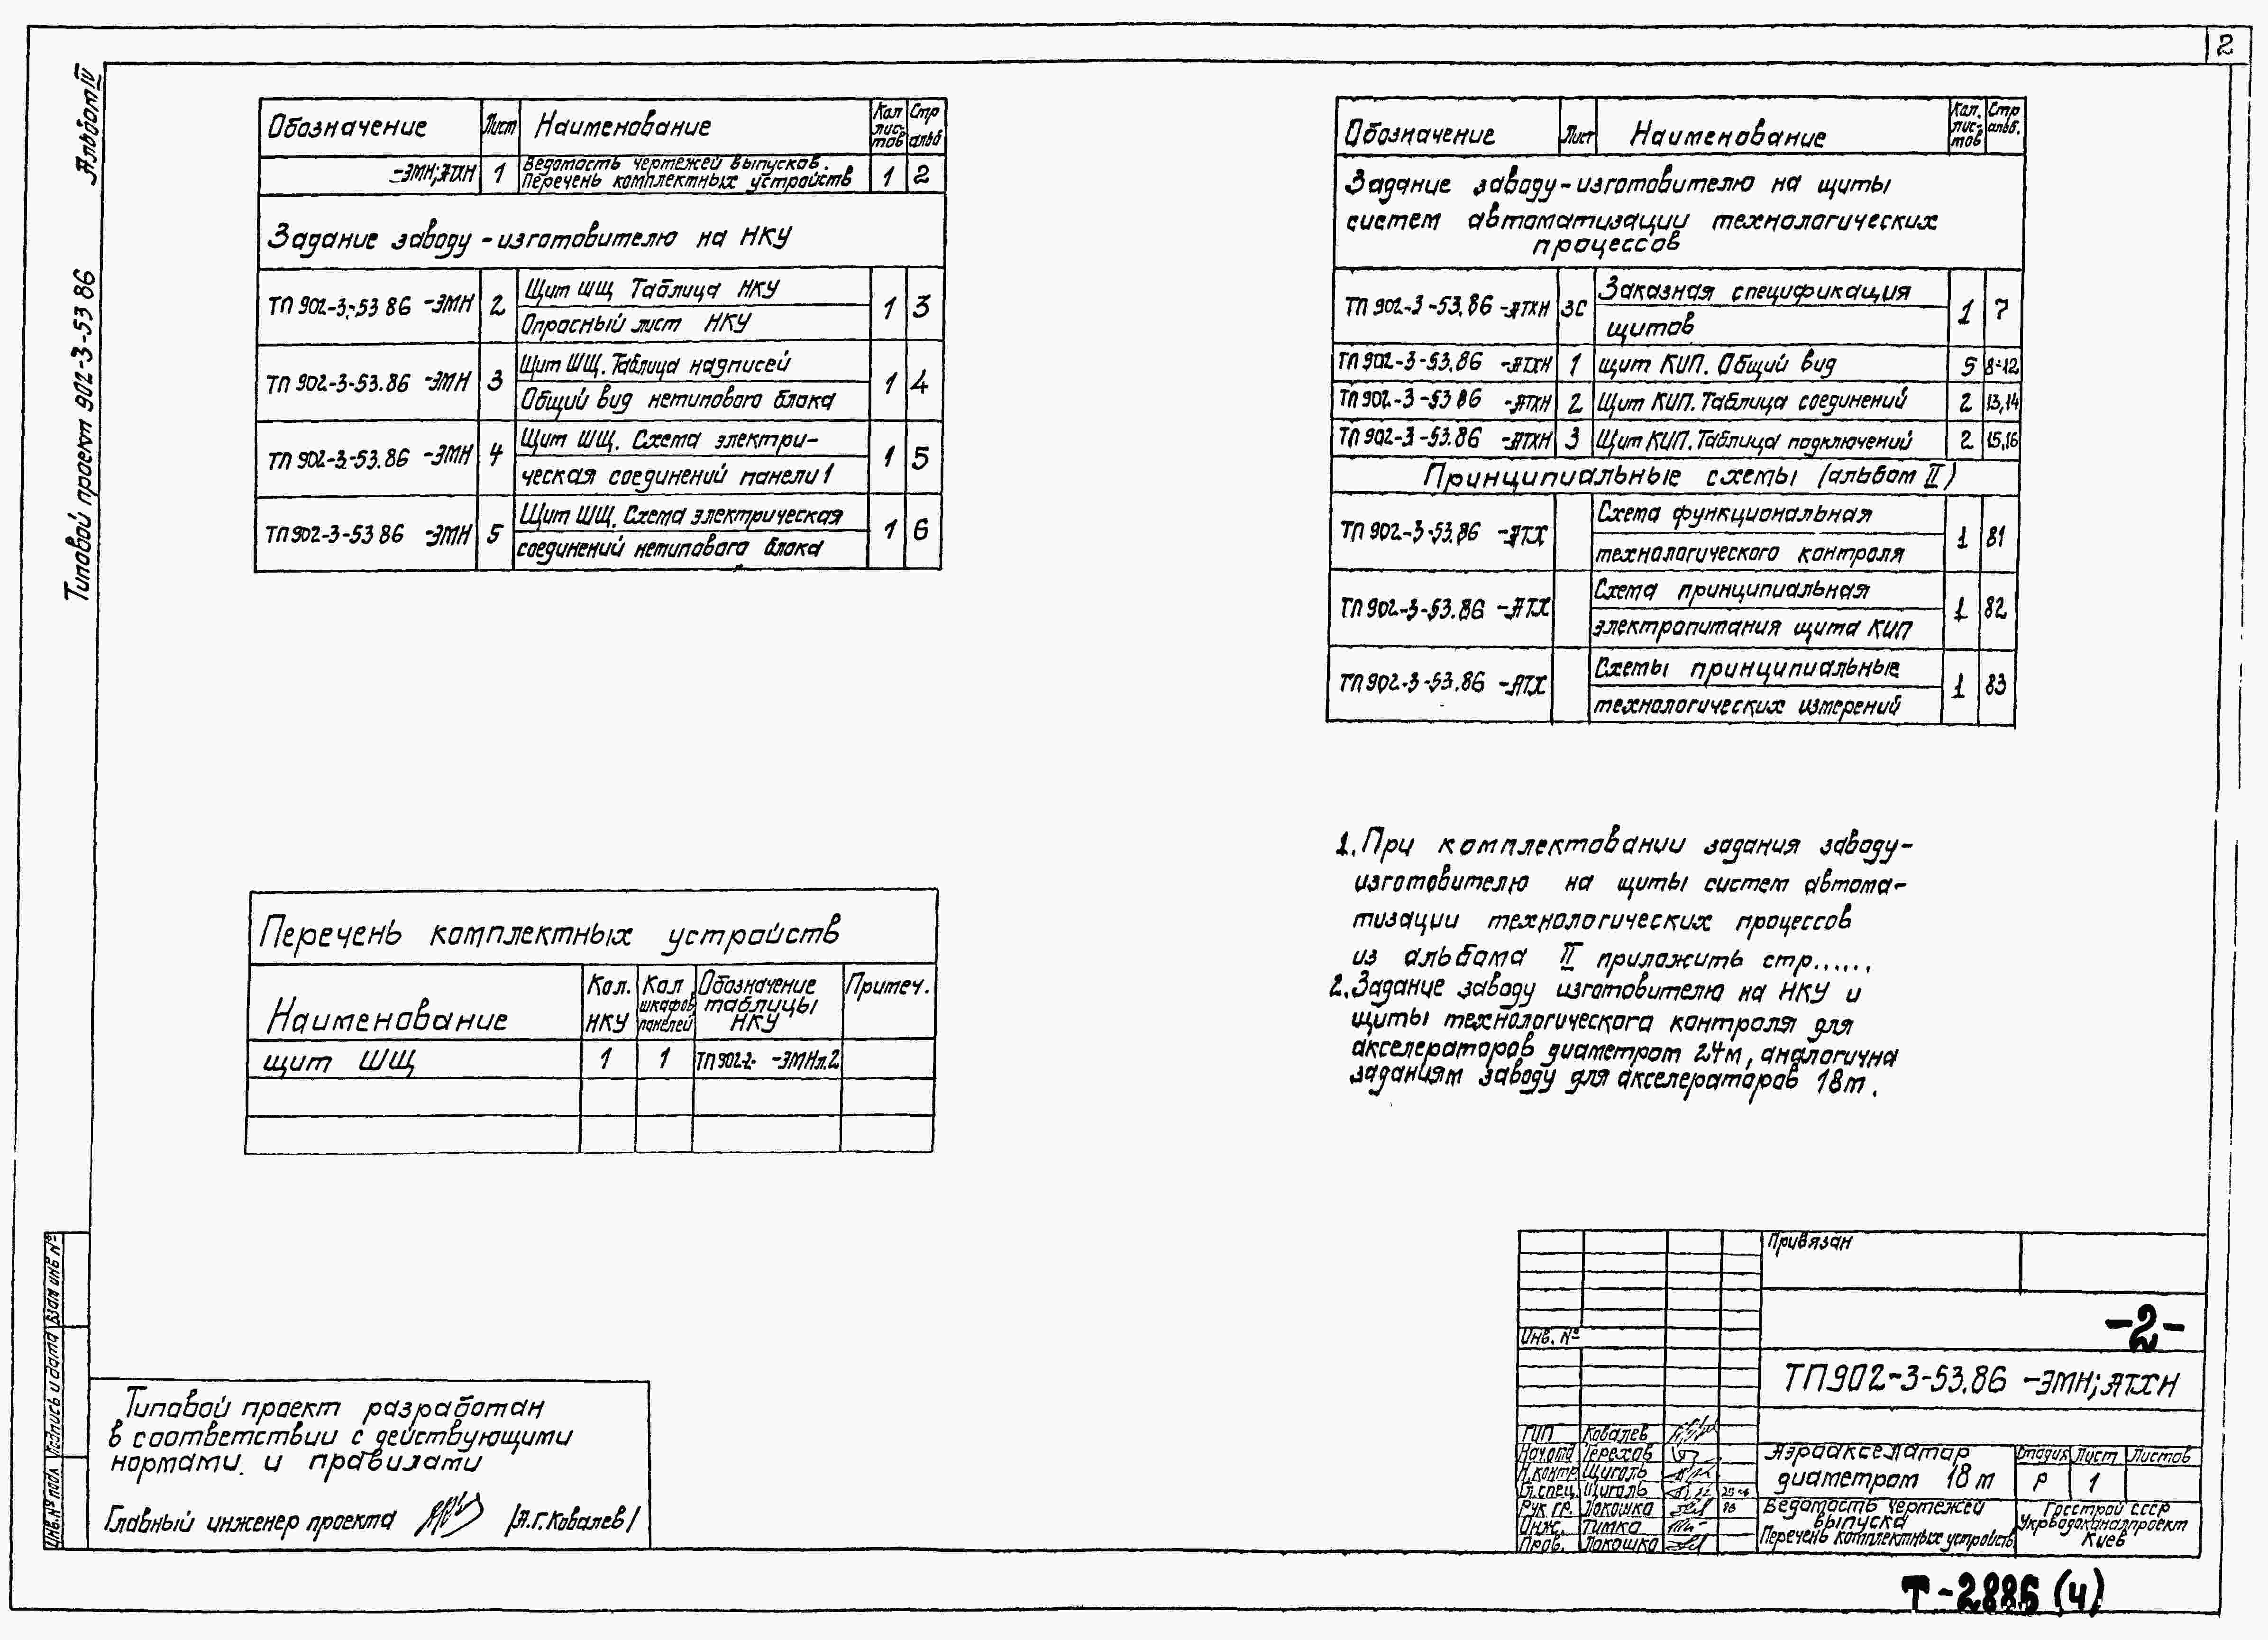 2
Альбом IV
Типовой проект 902-3-53 86
Обозначение Лист Наименование Кол лис-тов Стр альб
-ЭМН; АТХН 1 Ведомость чертежей выпусков. Перечень комплектных устройств 1 2
Задание заводу-изготовителю на НКУ
ТП 902-3-53 86 -ЭМН 2 Щит ШЩ Таблица НКУ 1 3
Опросный лист НКУ
ТП 902-3-53.86 -ЭМН 3 Щит ШЩ. Таблица надписей 1 4
Общий вид нетипового блока
ТП 902-3-53.86 -ЭМН 4 Щит ШЩ. Схема электри- 1 5
ческая соединений панели 1
ТП 902-3-53 86 -ЭМН 5 Щит ШЩ. Схема электрическая 1 6
соединений нетипового блока
Обозначение Лист Наименование Кол. лис-тов Стр альб.
Задание заводу-изготовителю на щиты
систем автоматизации технологических
процессов
ТП 902-3-53.86 -АТХН ЗС Заказная спецификация 1 7
щитов
ТП 902-3-53.86 -АТХН 1 щит КИП. Общий вид 5 8÷12
ТП 902-3-53 86 -АТХН 2 Щит КИП. Таблица соединений 2 13,14
ТП 902-3-53.86 -АТХН 3 Щит КИП. Таблица подключений 2 15,16
Принципиальные схемы (альбом II)
ТП 902-3-53.86 -АТХ Схема функциональная 1 81
технологического контроля
ТП 902-3-53.86 -АТХ Схема принципиальная 1 82
электропитания щита КИП
ТП 902-3-53.86 -АТХ Схемы принципиальные 1 83
технологических измерений
Перечень комплектных устройств
Наименование Кол. НКУ Кол шкафов, панелей Обозначение таблицы НКУ Примеч.
щит ШЩ 1 1 ТП 902-2- -ЭМН л.2
1. При комплектовании задания заводу-
изготовителю на щиты систем автома-
тизации технологических процессов
из альбома II приложить стр......
2. Задание заводу изготовителю на НКУ и
щиты технологического контроля для
акселераторов диаметром 24м, аналогична
заданиям заводу для акселераторов 18м.
Типовой проект разработан
в соответствии с действующими
нормами и правилами
Главный инженер проекта /А.Г.Ковалев/
Взам инв №
Подпись и дата
Инв.№ подл
Привязан
Инв. №
-2-
ТП902-3-53.86 -ЭМН; АТХН
ГИП Ковалев
Нач.отд Терехов
Н.контр Щиголь
Гл.спец. Щиголь
Рук гр. Локошко 86
Инж. Тимко
Пров. Локошко
Аэроакселатор
диаметром 18 м
Стадия Лист Листов
Р 1
Ведомость чертежей
выпуска
Перечень комплектных устройств
Госстрой СССР
Укрводоканалпроект
Киев
Т-2886 (4)